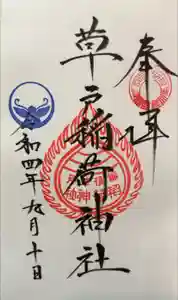 奉拝
草戸稲荷神社
令和四年九月十日